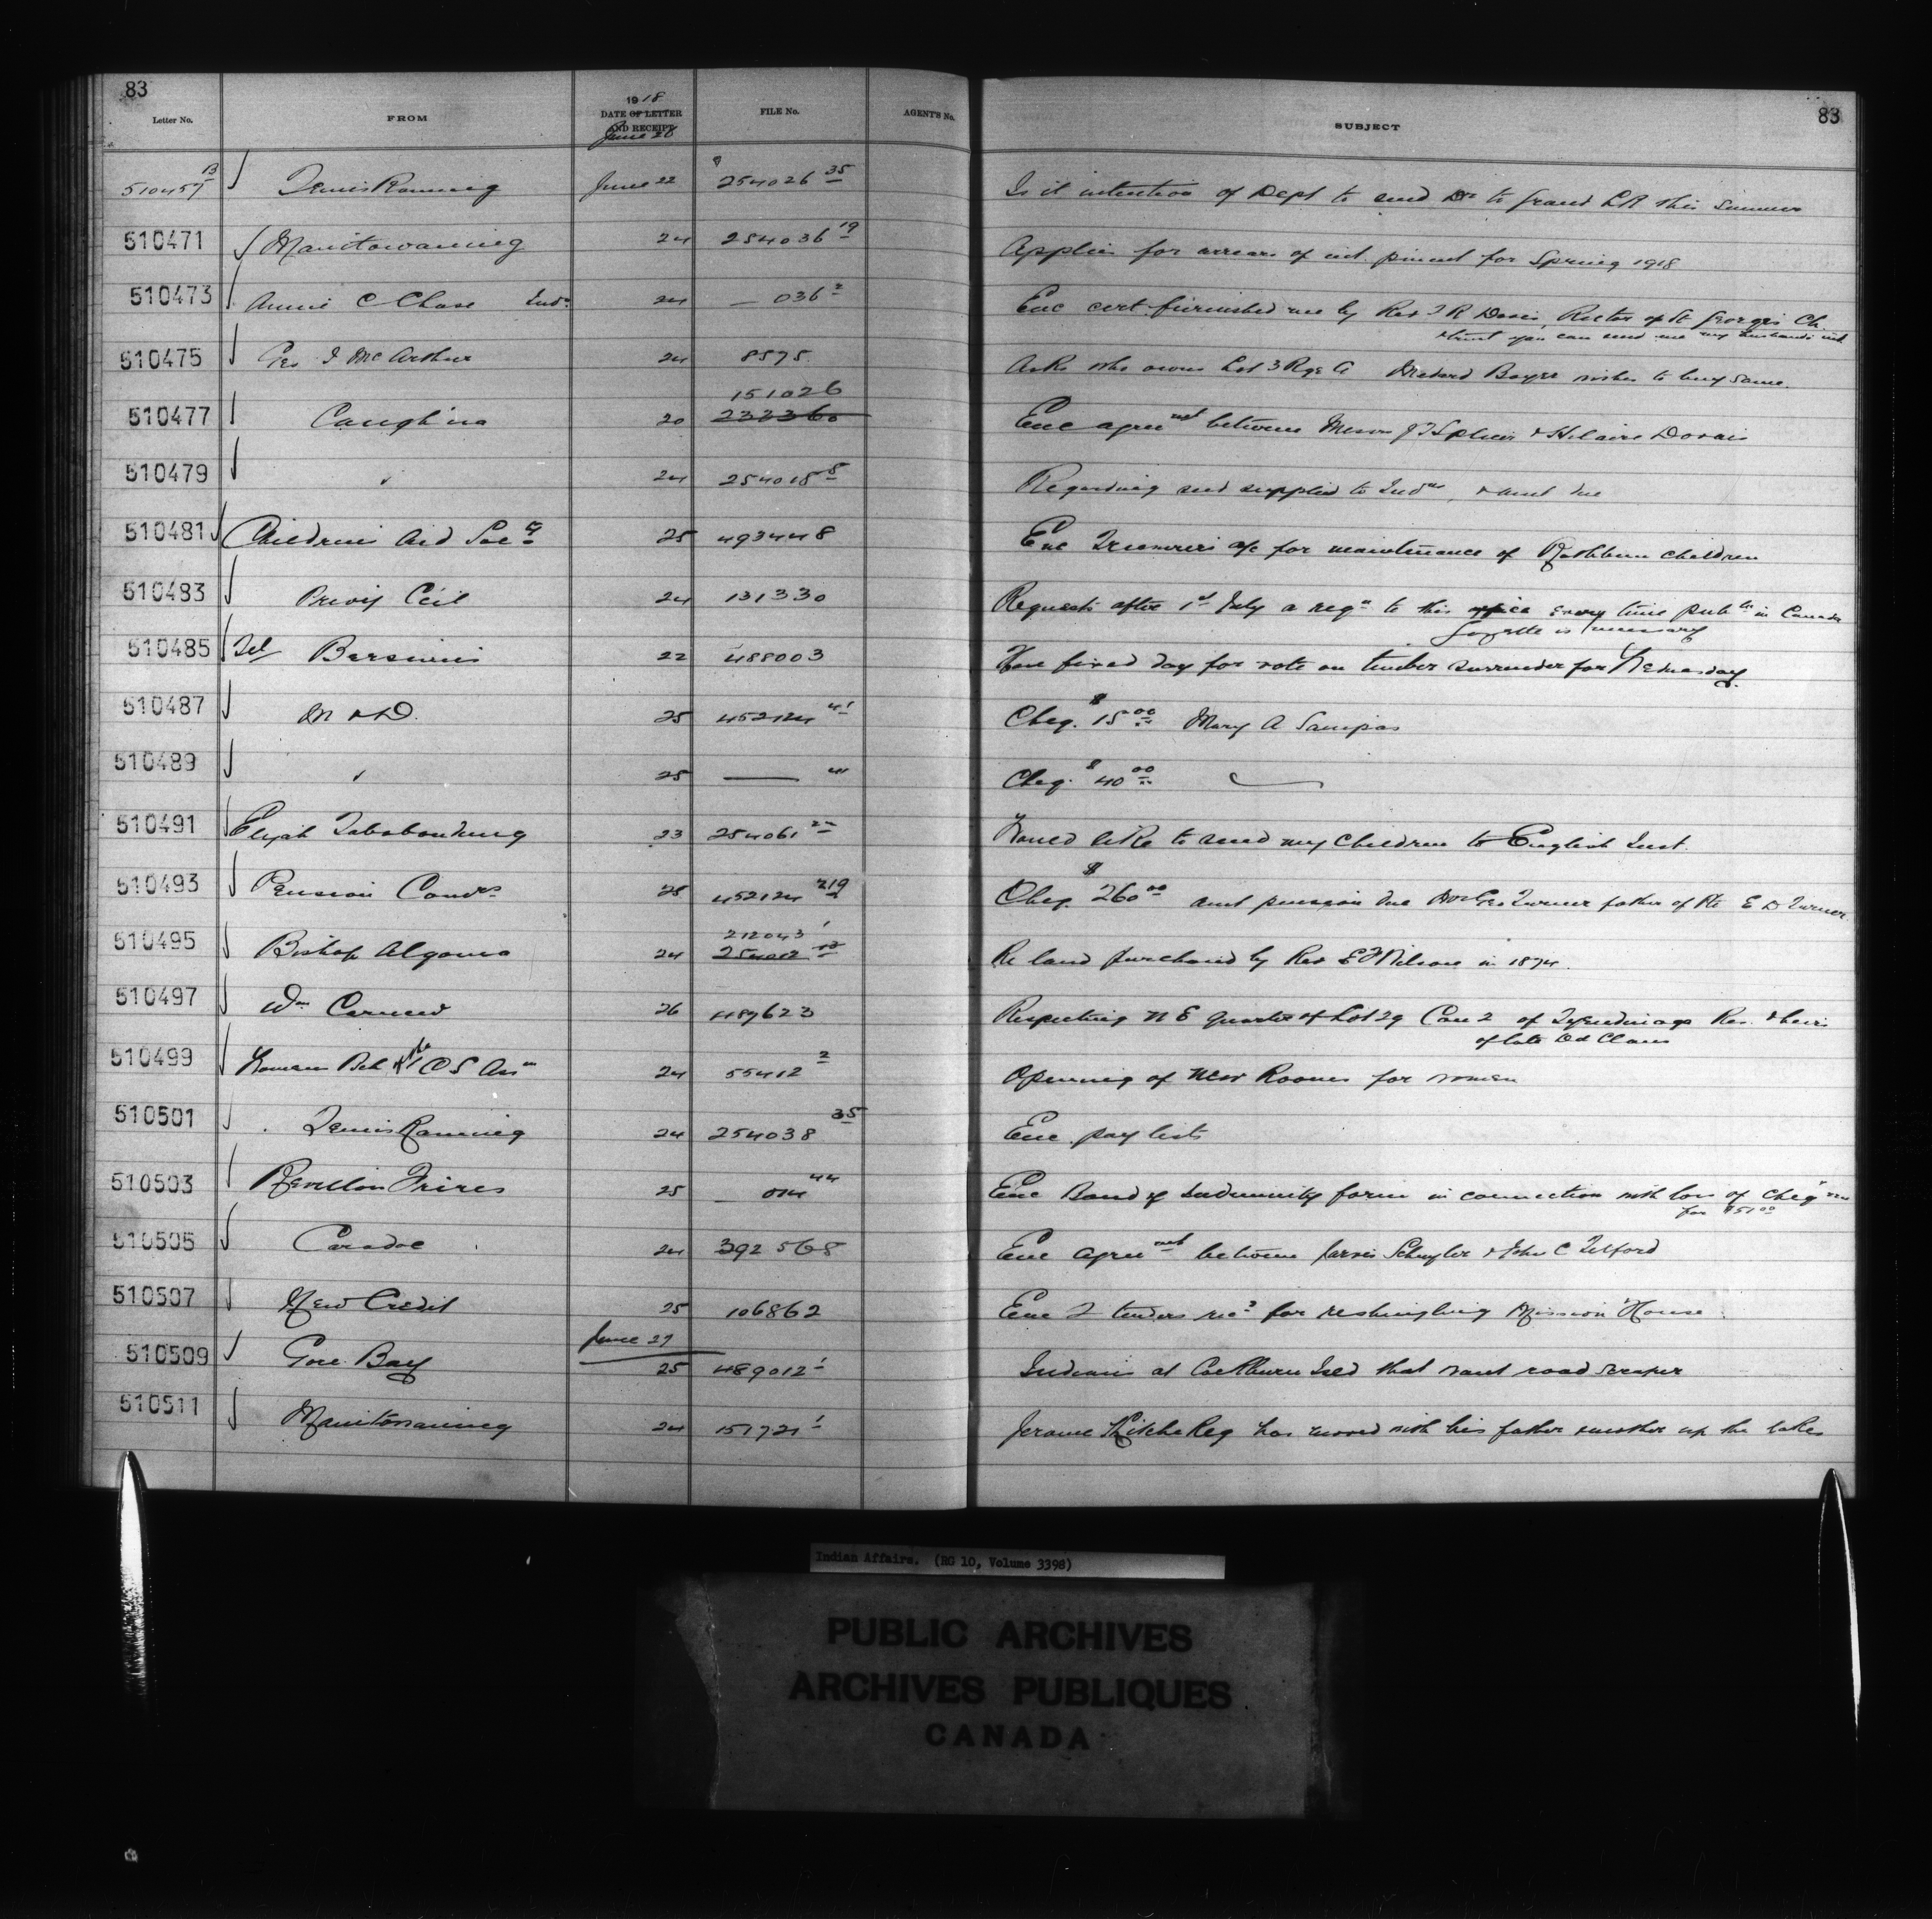 83
Letter No. FROM 1918 DATE OF LETTER AND RECEIPT FILE No. AGENT'S No. SUBJECT 83
June 26
510457 B Temiskaming June 22 254026 35 Is it intention of Dept to send Dr to Grand L R this summer
510471 Manitowaning 24 254036 19 Applies for arrears of int. for Spring 1918
510473 Annie C Chase Indn 24 — 036 2 Enc cert. furnished me by Rev T R Davis, Rector of St Georges Ch.
& trust you can send me my husbands int
510475 Geo I McArthur 24 8575 Asks who owns Lot 3 Rge A Medard Boyer wishes to buy same.
510477 Caughna 20 151026 233360 Enc agreemt between Messrs & Hilaire Dorais
510479 " 24 254018 8 Regarding seed supplied to Inds, & amt due
510481 Childrens Aid Socy 25 493448 Enc Treasurers a/c for maintenance of Rathbun children
510483 Privy Ccil 24 131330 Requests after 1st July a reqn to this office every time pubtn in Canada
Gazette is necessary
510485 Tel Bersimis 22 488003 Have fixed day for vote on timber surrender for Wednesday.
510487 M & D. 25 452124 41 Cheq. $15 00 Mary A Sampias
510489 " 25 — 41 Cheq. $40 00
510491 Elijah Tabobondung 23 254061 22 Would like to send my children to English Inst.
510493 Pension Comrs 25 452124 219 Cheq. $260 00 amt pension due Geo Turner father of Pte E D Turner
510495 Bishop Algoma 24 212043 1 254012 Re land purchased by Rev E F Wilson in 1874.
510497 Wm Carnew 26 489623 Respecting N E quarter of Lot 29 Con 2 of Tyendinaga Res. & heirs
of late Claus
510499 24 55412 2 Opening of new Rooms for women
510501 Temiskaming 24 254038 35 Enc. pay lists
510503 Revillon Freres 25 — 014 44 Enc Bond of Indemnity form in connection with loss of cheq
for $51 00
510505 Caradoc 24 392568 Enc agreemt between Jarvis Schuyler & John C Telford
510507 New Credit 25 106862 Enc 2 tenders recd for reshingling Mission House.
June 27
510509 Gore Bay 25 489012 1 Indians at Cockburn Isld that want road scraper
510511 Manitowaning 24 151721 1 Jerome has moved with his father & mother up the lakes
Indian Affairs. (RG 10, Volume 3398)
PUBLIC ARCHIVES
ARCHIVES PUBLIQUES
CANADA